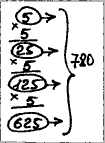 5
× 5
25
× 5
125
× 5
625
780